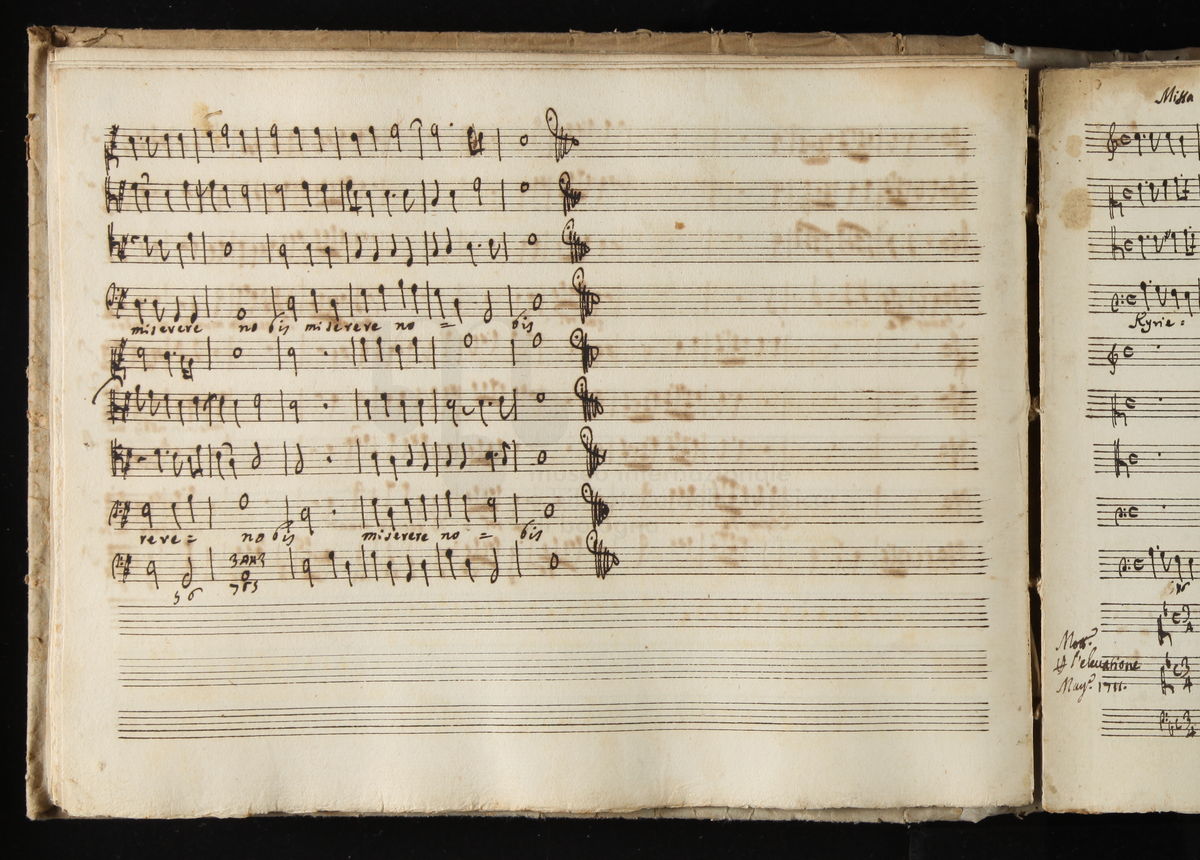 miserere no bis miserere no = bis
rere = no bis miserere no = bis
5 6
Missa
Kyrie =
Mott.
l'elevatione
1711.